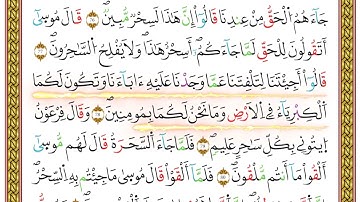 جَآءَهُمُ الْحَقُّ مِنْ عِندِنَا قَالُوٓا۟ إِنَّ هَٰذَا لَسِحْرٌ مُّبِينٌ ۞ قَالَ مُوسَىٰٓ
أَتَقُولُونَ لِلْحَقِّ لَمَّا جَآءَكُمْ أَسِحْرٌ هَٰذَا وَلَا يُفْلِحُ السَّٰحِرُونَ ۞
قَالُوٓا۟ أَجِئْتَنَا لِتَلْفِتَنَا عَمَّا وَجَدْنَا عَلَيْهِ ءَابَآءَنَا وَتَكُونَ لَكُمَا
الْكِبْرِيَآءُ فِي الْأَرْضِ وَمَا نَحْنُ لَكُمَا بِمُومِنِينَ ۞ وَقَالَ فِرْعَوْنُ
ايتُونِي بِكُلِّ سَٰحِرٍ عَلِيمٍ ۞ فَلَمَّا جَآءَ السَّحَرَةُ قَالَ لَهُم مُّوسَىٰٓ
أَلْقُوا۟ مَآ أَنتُم مُّلْقُونَ ۞ فَلَمَّآ أَلْقَوْا۟ قَالَ مُوسَىٰ مَا جِئْتُم بِهِ السِّحْرُ